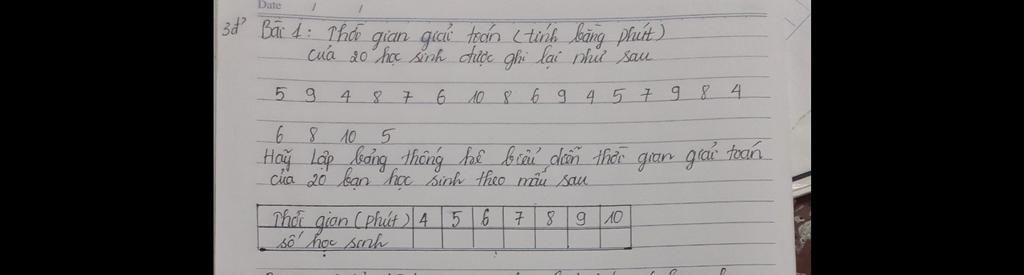 Date / /
3đ' Bài 1: Thời gian giải toán (tính bằng phút)
của 20 học sinh được ghi lại như sau
5 9 4 8 7 6 10 8 6 9 4 5 7 9 8 4
6 8 10 5
Hãy Lập bảng thống kê biểu diễn thời gian giải toán
của 20 bạn học sinh theo mẫu sau
Thời gian (phút) 4 5 6 7 8 9 10
số học sinh